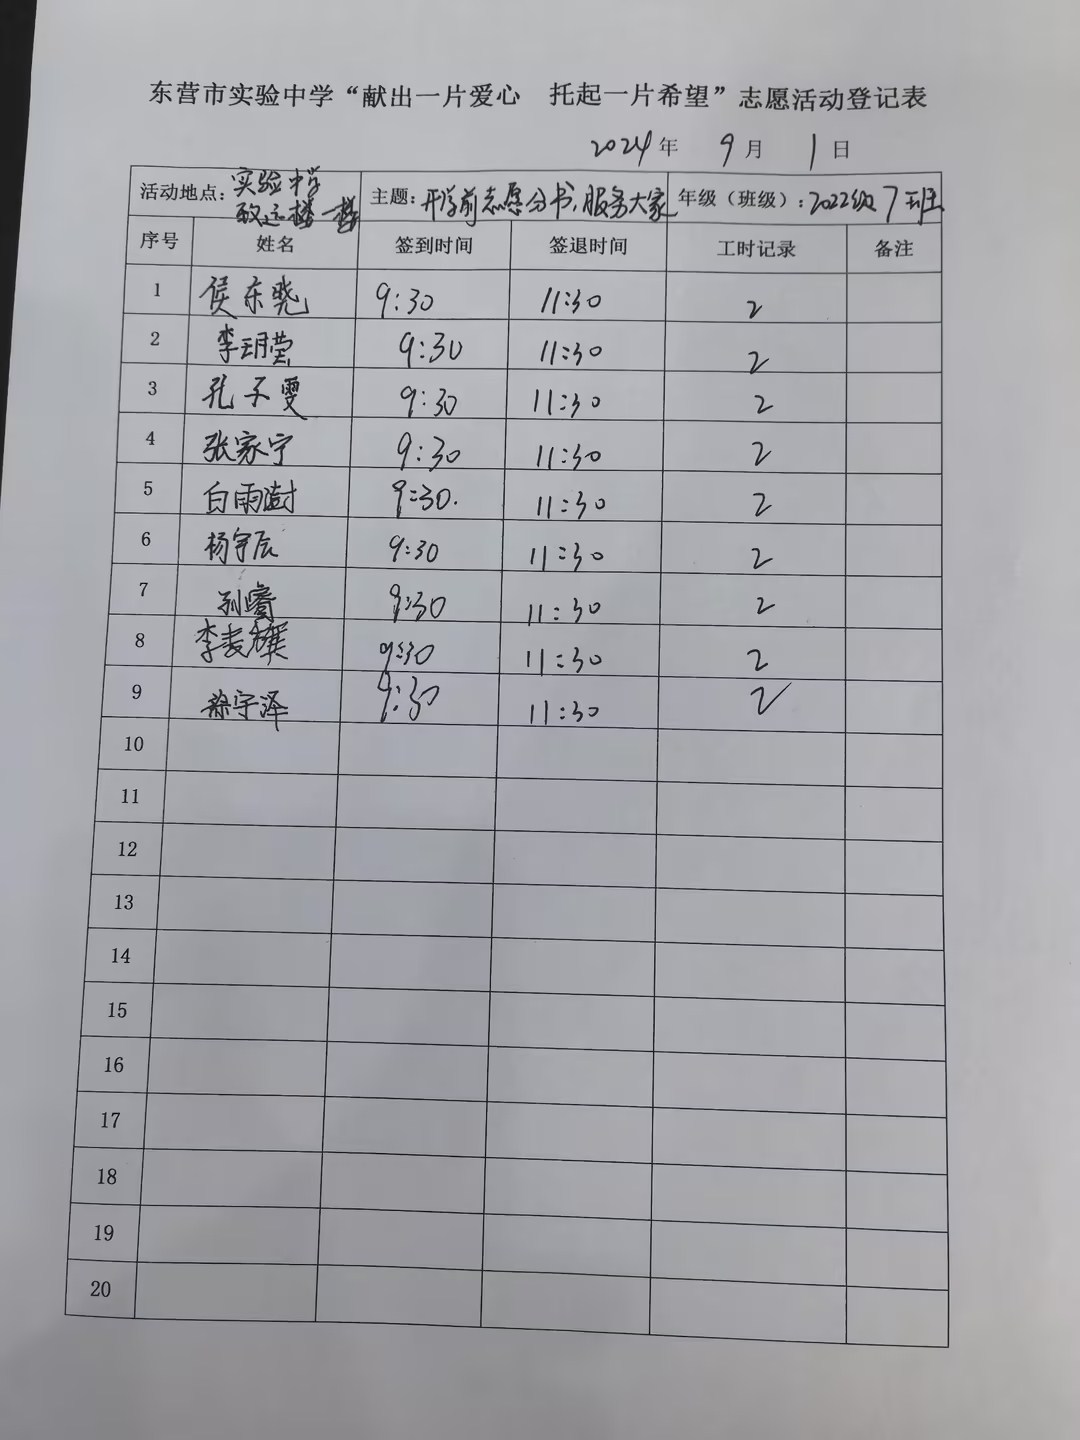 东营市实验中学“献出一片爱心 托起一片希望”志愿活动登记表
2024年 9月 1日
活动地点：实验中学致远楼一楼 主题：开学前志愿分书，服务大家 年级（班级）：2022级7班
序号 姓名 签到时间 签退时间 工时记录 备注
1 侯东尧 9:30 11:30 2
2 李玥莹 9:30 11:30 2
3 孔子雯 9:30 11:30 2
4 张家宁 9:30 11:30 2
5 白雨澍 9:30. 11:30 2
6 杨宇辰 9:30 11:30 2
7 孙睿 9:30 11:30 2
8 李麦 9:30 11:30 2
9 宇泽 9:30 11:30 2
10
11
12
13
14
15
16
17
18
19
20